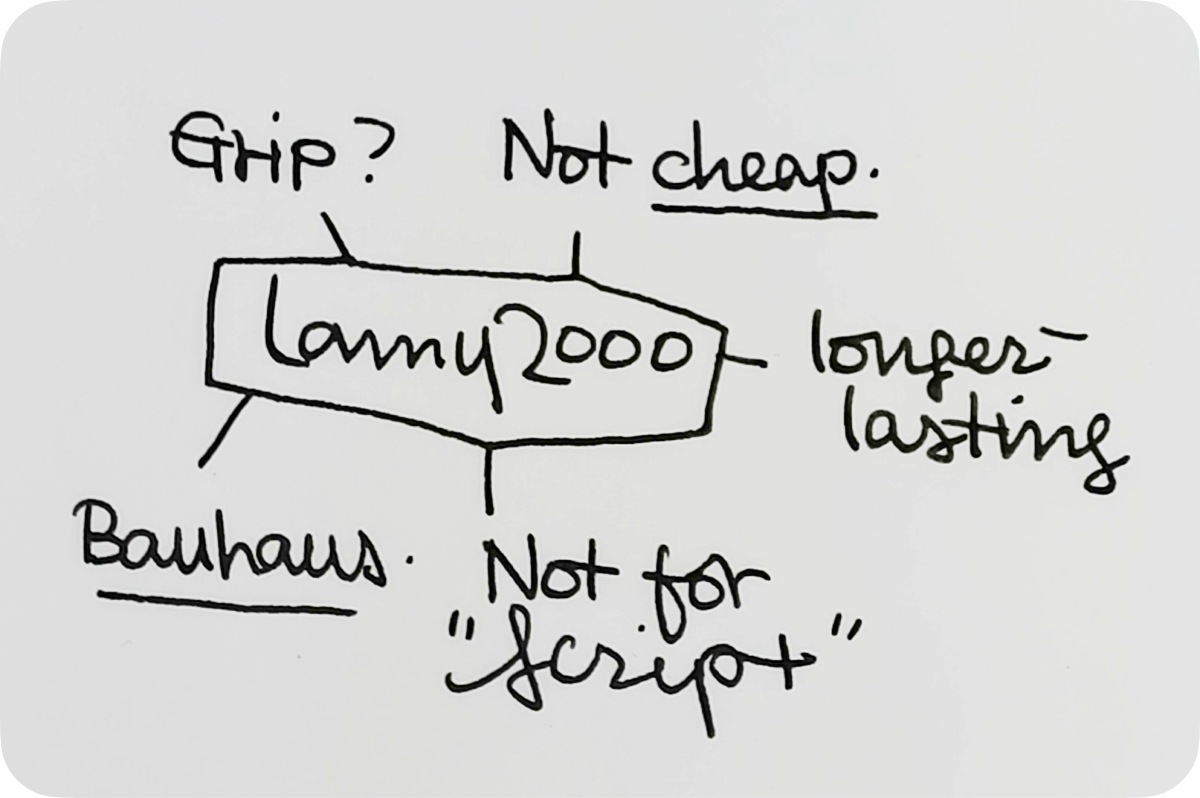 Grip?
Not cheap.
Lamy 2000
longer-
lasting
Bauhaus.
Not for
"Script"